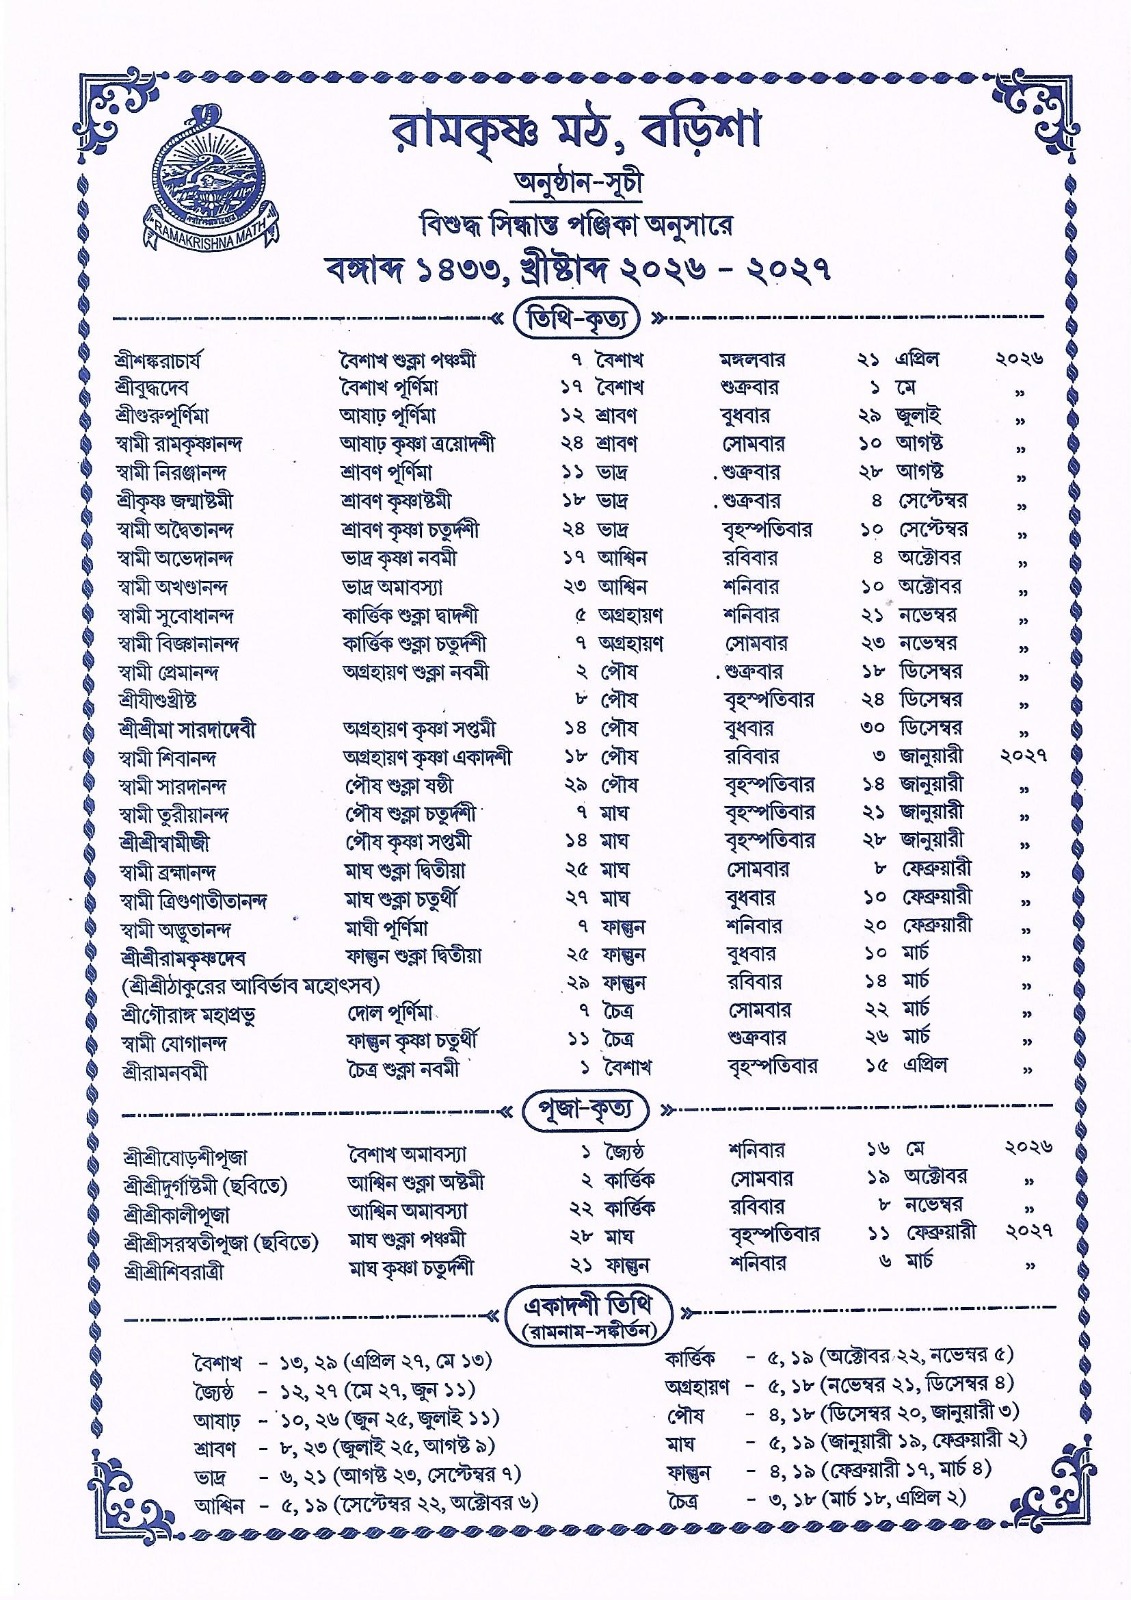 রামকৃষ্ণ মঠ, বড়িশা
RAMAKRISHNA MATH
অনুষ্ঠান-সূচী
বিশুদ্ধ সিদ্ধান্ত পঞ্জিকা অনুসারে
বঙ্গাব্দ ১৪৩৩, খ্রীষ্টাব্দ ২০২৬ - ২০২৭
তিথি-কৃত্য
শ্রীশঙ্করাচার্য বৈশাখ শুক্লা পঞ্চমী ৭ বৈশাখ মঙ্গলবার ২১ এপ্রিল ২০২৬
শ্রীবুদ্ধদেব বৈশাখ পূর্ণিমা ১৭ বৈশাখ শুক্রবার ১ মে ,,
শ্রীগুরুপূর্ণিমা আষাঢ় পূর্ণিমা ১২ শ্রাবণ বুধবার ২৯ জুলাই ,,
স্বামী রামকৃষ্ণানন্দ আষাঢ় কৃষ্ণা ত্রয়োদশী ২৪ শ্রাবণ সোমবার ১০ আগষ্ট ,,
স্বামী নিরঞ্জানন্দ শ্রাবণ পূর্ণিমা ১১ ভাদ্র শুক্রবার ২৮ আগষ্ট ,,
শ্রীকৃষ্ণ জন্মাষ্টমী শ্রাবণ কৃষ্ণাষ্টমী ১৮ ভাদ্র শুক্রবার ৪ সেপ্টেম্বর ,,
স্বামী অদ্বৈতানন্দ শ্রাবণ কৃষ্ণা চতুর্দশী ২৪ ভাদ্র বৃহস্পতিবার ১০ সেপ্টেম্বর ,,
স্বামী অভেদানন্দ ভাদ্র কৃষ্ণা নবমী ১৭ আশ্বিন রবিবার ৪ অক্টোবর ,,
স্বামী অখণ্ডানন্দ ভাদ্র অমাবস্যা ২৩ আশ্বিন শনিবার ১০ অক্টোবর ,,
স্বামী সুবোধানন্দ কার্ত্তিক শুক্লা দ্বাদশী ৫ অগ্রহায়ণ শনিবার ২১ নভেম্বর ,,
স্বামী বিজ্ঞানানন্দ কার্ত্তিক শুক্লা চতুর্দশী ৭ অগ্রহায়ণ সোমবার ২৩ নভেম্বর ,,
স্বামী প্রেমানন্দ অগ্রহায়ণ শুক্লা নবমী ২ পৌষ শুক্রবার ১৮ ডিসেম্বর ,,
শ্রীযীশুখ্রীষ্ট ৮ পৌষ বৃহস্পতিবার ২৪ ডিসেম্বর ,,
শ্রীশ্রীমা সারদাদেবী অগ্রহায়ণ কৃষ্ণা সপ্তমী ১৪ পৌষ বুধবার ৩০ ডিসেম্বর ,,
স্বামী শিবানন্দ অগ্রহায়ণ কৃষ্ণা একাদশী ১৮ পৌষ রবিবার ৩ জানুয়ারী ২০২৭
স্বামী সারদানন্দ পৌষ শুক্লা ষষ্ঠী ২৯ পৌষ বৃহস্পতিবার ১৪ জানুয়ারী ,,
স্বামী তুরীয়ানন্দ পৌষ শুক্লা চতুর্দশী ৭ মাঘ বৃহস্পতিবার ২১ জানুয়ারী ,,
শ্রীশ্রীস্বামীজী পৌষ কৃষ্ণা সপ্তমী ১৪ মাঘ বৃহস্পতিবার ২৮ জানুয়ারী ,,
স্বামী ব্রহ্মানন্দ মাঘ শুক্লা দ্বিতীয়া ২৫ মাঘ সোমবার ৮ ফেব্রুয়ারী ,,
স্বামী ত্রিগুণাতীতানন্দ মাঘ শুক্লা চতুর্থী ২৭ মাঘ বুধবার ১০ ফেব্রুয়ারী ,,
স্বামী অদ্ভুতানন্দ মাঘী পূর্ণিমা ৭ ফাল্গুন শনিবার ২০ ফেব্রুয়ারী ,,
শ্রীশ্রীরামকৃষ্ণদেব ফাল্গুন শুক্লা দ্বিতীয়া ২৫ ফাল্গুন বুধবার ১০ মার্চ ,,
(শ্রীশ্রীঠাকুরের আবির্ভাব মহোৎসব) ২৯ ফাল্গুন রবিবার ১৪ মার্চ ,,
শ্রীগৌরাঙ্গ মহাপ্রভু দোল পূর্ণিমা ৭ চৈত্র সোমবার ২২ মার্চ ,,
স্বামী যোগানন্দ ফাল্গুন কৃষ্ণা চতুর্থী ১১ চৈত্র শুক্রবার ২৬ মার্চ ,,
শ্রীরামনবমী চৈত্র শুক্লা নবমী ১ বৈশাখ বৃহস্পতিবার ১৫ এপ্রিল ,,
পূজা-কৃত্য
শ্রীশ্রীষোড়শীপূজা বৈশাখ অমাবস্যা ১ জ্যৈষ্ঠ শনিবার ১৬ মে ২০২৬
শ্রীশ্রীদুর্গাষ্টমী (ছবিতে) আশ্বিন শুক্লা অষ্টমী ২ কার্ত্তিক সোমবার ১৯ অক্টোবর ,,
শ্রীশ্রীকালীপূজা আশ্বিন অমাবস্যা ২২ কার্ত্তিক রবিবার ৮ নভেম্বর ,,
শ্রীশ্রীসরস্বতীপূজা (ছবিতে) মাঘ শুক্লা পঞ্চমী ২৮ মাঘ বৃহস্পতিবার ১১ ফেব্রুয়ারী ২০২৭
শ্রীশ্রীশিবরাত্রী মাঘ কৃষ্ণা চতুর্দশী ২১ ফাল্গুন শনিবার ৬ মার্চ ,,
একাদশী তিথি
(রামনাম-সঙ্কীর্তন)
বৈশাখ - ১৩, ২৯ (এপ্রিল ২৭, মে ১৩)
জ্যৈষ্ঠ - ১২, ২৭ (মে ২৭, জুন ১১)
আষাঢ় - ১০, ২৬ (জুন ২৫, জুলাই ১১)
শ্রাবণ - ৮, ২৩ (জুলাই ২৫, আগষ্ট ৯)
ভাদ্র - ৬, ২১ (আগষ্ট ২৩, সেপ্টেম্বর ৭)
আশ্বিন - ৫, ১৯ (সেপ্টেম্বর ২২, অক্টোবর ৬)
কার্ত্তিক - ৫, ১৯ (অক্টোবর ২২, নভেম্বর ৫)
অগ্রহায়ণ - ৫, ১৮ (নভেম্বর ২১, ডিসেম্বর ৪)
পৌষ - ৪, ১৮ (ডিসেম্বর ২০, জানুয়ারী ৩)
মাঘ - ৫, ১৯ (জানুয়ারী ১৯, ফেব্রুয়ারী ২)
ফাল্গুন - ৪, ১৯ (ফেব্রুয়ারী ১৭, মার্চ ৪)
চৈত্র - ৩, ১৮ (মার্চ ১৮, এপ্রিল ২)